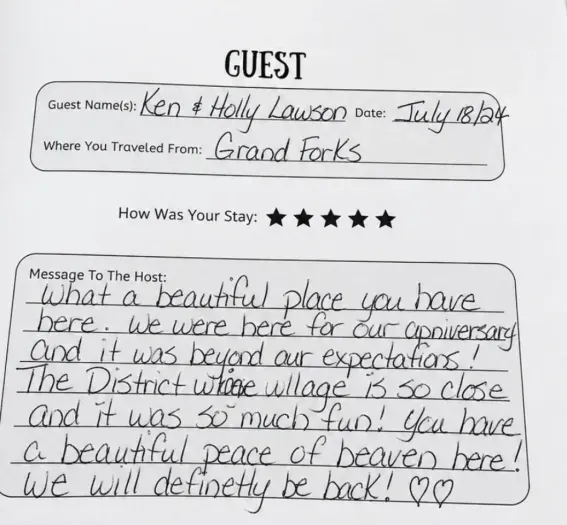 GUEST
Guest Name(s): Ken & Holly Lawson Date: July 18/24
Where You Traveled From: Grand Forks
How Was Your Stay: ★ ★ ★ ★ ★
Message To The Host:
What a beautiful place you have
here. We were here for our anniversary
and it was beyond our expectations!
The District wine village is so close
and it was so much fun! You have
a beautiful peace of heaven here!
We will definetly be back! ♡♡